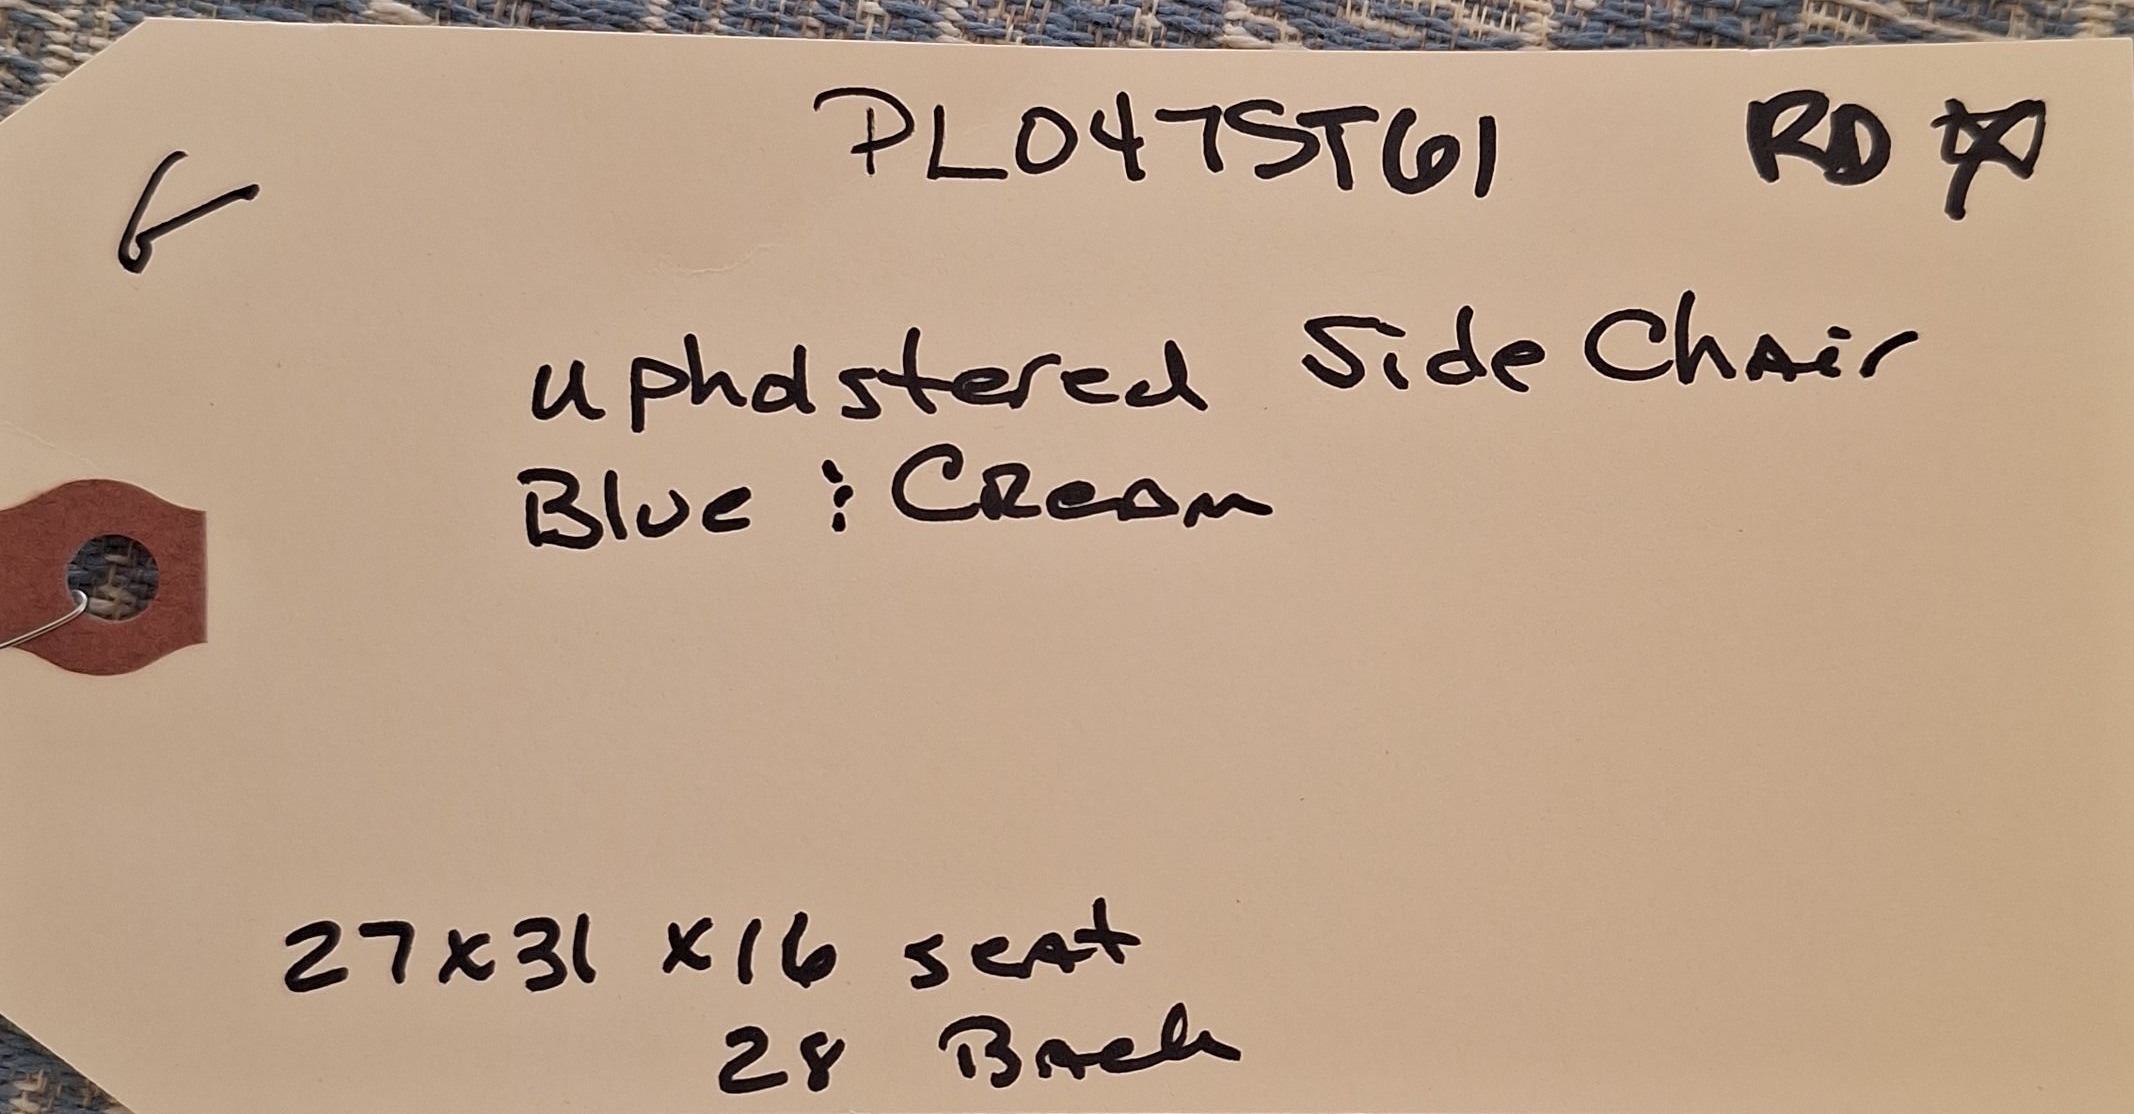 PL047ST61 RD
upholstered Side Chair
Blue & Cream
27x31 x16 seat
28 Back